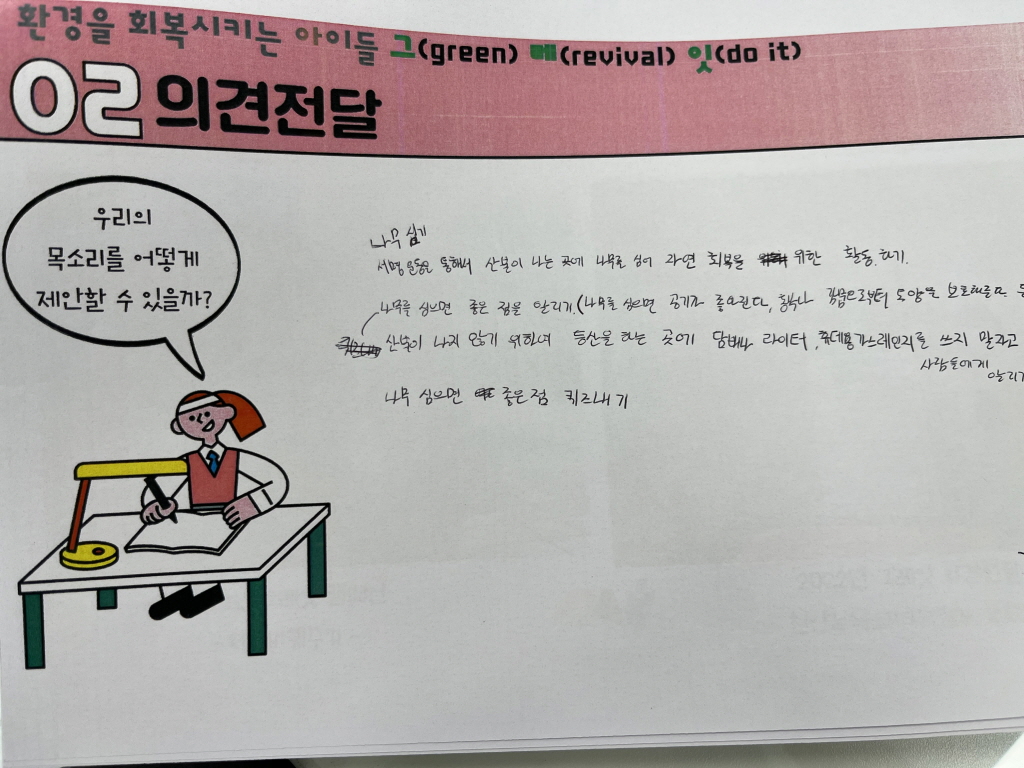 환경을 회복시키는 아이들 그(green) 메(revival) 잇(do it)
02 의견전달
우리의
목소리를 어떻게
제안할 수 있을까?
나무 심기
서명운동을 통해서 산불이 나는 곳에 나무를 심어 자연 회복을 위한 활동하기.
나무를 심으면 좋은 점을 알리기.(나무를 심으면 공기가 좋아진다, 홍수나 가뭄으로부터 토양을
산불이 나지 않기 위하여 등산을 하는 곳에 담배나 라이터, 휴대용가스레인지를 쓰지 말자고
사람들에게
알리기
나무 심으면 좋은점 퀴즈내기